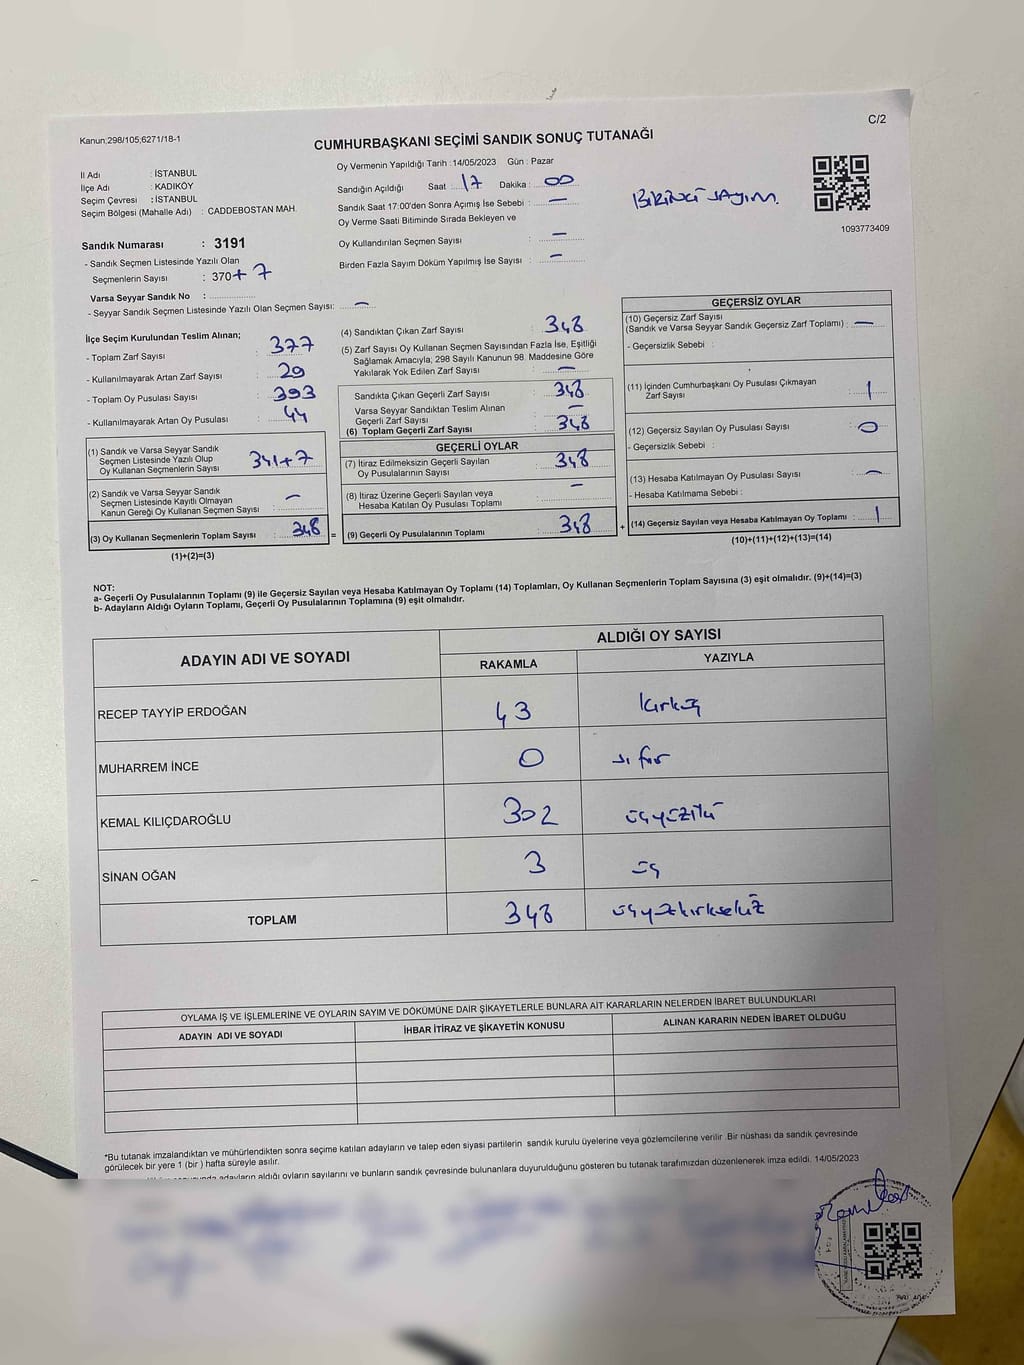 Kanun:298/105;6271/18-1
C/2
CUMHURBAŞKANI SEÇİMİ SANDIK SONUÇ TUTANAĞI
İl Adı : İSTANBUL
İlçe Adı : KADIKÖY
Seçim Çevresi : İSTANBUL
Seçim Bölgesi (Mahalle Adı) : CADDEBOSTAN MAH.
Sandık Numarası : 3191
- Sandık Seçmen Listesinde Yazılı Olan
Seçmenlerin Sayısı : 370+7
Varsa Seyyar Sandık No :
- Seyyar Sandık Seçmen Listesinde Yazılı Olan Seçmen Sayısı: —
Oy Vermenin Yapıldığı Tarih :14/05/2023 Gün : Pazar
Sandığın Açıldığı Saat : 17 Dakika : 00
Sandık Saat 17:00'den Sonra Açımış İse Sebebi : —
Oy Verme Saati Bitiminde Sırada Bekleyen ve
Oy Kullandırılan Seçmen Sayısı : —
Birden Fazla Sayım Döküm Yapılmış İse Sayısı : —
BİRİNCİ SAYIM.
1093773409
İlçe Seçim Kurulundan Teslim Alınan;
- Toplam Zarf Sayısı : 377
- Kullanılmayarak Artan Zarf Sayısı : 29
- Toplam Oy Pusulası Sayısı : 393
- Kullanılmayarak Artan Oy Pusulası : 44
(1) Sandık ve Varsa Seyyar Sandık
Seçmen Listesinde Yazılı Olup
Oy Kullanan Seçmenlerin Sayısı : 341+7
(2) Sandık ve Varsa Seyyar Sandık
Seçmen Listesinde Kayıtlı Olmayan
Kanun Gereği Oy Kullanan Seçmen Sayısı : —
(3) Oy Kullanan Seçmenlerin Toplam Sayısı : 348 =
(1)+(2)=(3)
(4) Sandıktan Çıkan Zarf Sayısı : 348
(5) Zarf Sayısı Oy Kullanan Seçmen Sayısından Fazla İse, Eşitliği
Sağlamak Amacıyla; 298 Sayılı Kanunun 98. Maddesine Göre
Yakılarak Yok Edilen Zarf Sayısı : —
Sandıkta Çıkan Geçerli Zarf Sayısı : 348
Varsa Seyyar Sandıktan Teslim Alınan
Geçerli Zarf Sayısı : —
(6) Toplam Geçerli Zarf Sayısı : 348
GEÇERLİ OYLAR
(7) İtiraz Edilmeksizin Geçerli Sayılan
Oy Pusulalarının Sayısı : 348
(8) İtiraz Üzerine Geçerli Sayılan veya
Hesaba Katılan Oy Pusulası Toplamı : —
(9) Geçerli Oy Pusulalarının Toplamı : 348 +
GEÇERSİZ OYLAR
(10) Geçersiz Zarf Sayısı
(Sandık ve Varsa Seyyar Sandık Geçersiz Zarf Toplamı) : —
- Geçersizlik Sebebi :
(11) İçinden Cumhurbaşkanı Oy Pusulası Çıkmayan
Zarf Sayısı : 1
(12) Geçersiz Sayılan Oy Pusulası Sayısı : 0
- Geçersizlik Sebebi :
(13) Hesaba Katılmayan Oy Pusulası Sayısı : —
- Hesaba Katılmama Sebebi :
(14) Geçersiz Sayılan veya Hesaba Katılmayan Oy Toplamı : 1
(10)+(11)+(12)+(13)=(14)
NOT:
a- Geçerli Oy Pusulalarının Toplamı (9) ile Geçersiz Sayılan veya Hesaba Katılmayan Oy Toplamı (14) Toplamları, Oy Kullanan Seçmenlerin Toplam Sayısına (3) eşit olmalıdır. (9)+(14)=(3)
b- Adayların Aldığı Oyların Toplamı, Geçerli Oy Pusulalarının Toplamına (9) eşit olmalıdır.
ADAYIN ADI VE SOYADI
ALDIĞI OY SAYISI
RAKAMLA YAZIYLA
RECEP TAYYİP ERDOĞAN 43 kırküç
MUHARREM İNCE 0 sıfır
KEMAL KILIÇDAROĞLU 302 üçyüziki
SİNAN OĞAN 3 üç
TOPLAM 348 üçyüzkırksekiz
OYLAMA İŞ VE İŞLEMLERİNE VE OYLARIN SAYIM VE DÖKÜMÜNE DAİR ŞİKAYETLERLE BUNLARA AİT KARARLARIN NELERDEN İBARET BULUNDUKLARI
ADAYIN ADI VE SOYADI İHBAR İTİRAZ VE ŞİKAYETİN KONUSU ALINAN KARARIN NEDEN İBARET OLDUĞU
*Bu tutanak imzalandıktan ve mühürlendikten sonra seçime katılan adayların ve talep eden siyasi partilerin sandık kurulu üyelerine veya gözlemcilerine verilir .Bir nüshası da sandık çevresinde
görülecek bir yere 1 (bir ) hafta süreyle asılır.
adayların aldığı oyların sayılarını ve bunların sandık çevresinde bulunanlara duyurulduğunu gösteren bu tutanak tarafımızdan düzenlenerek imza edildi. 14/05/2023